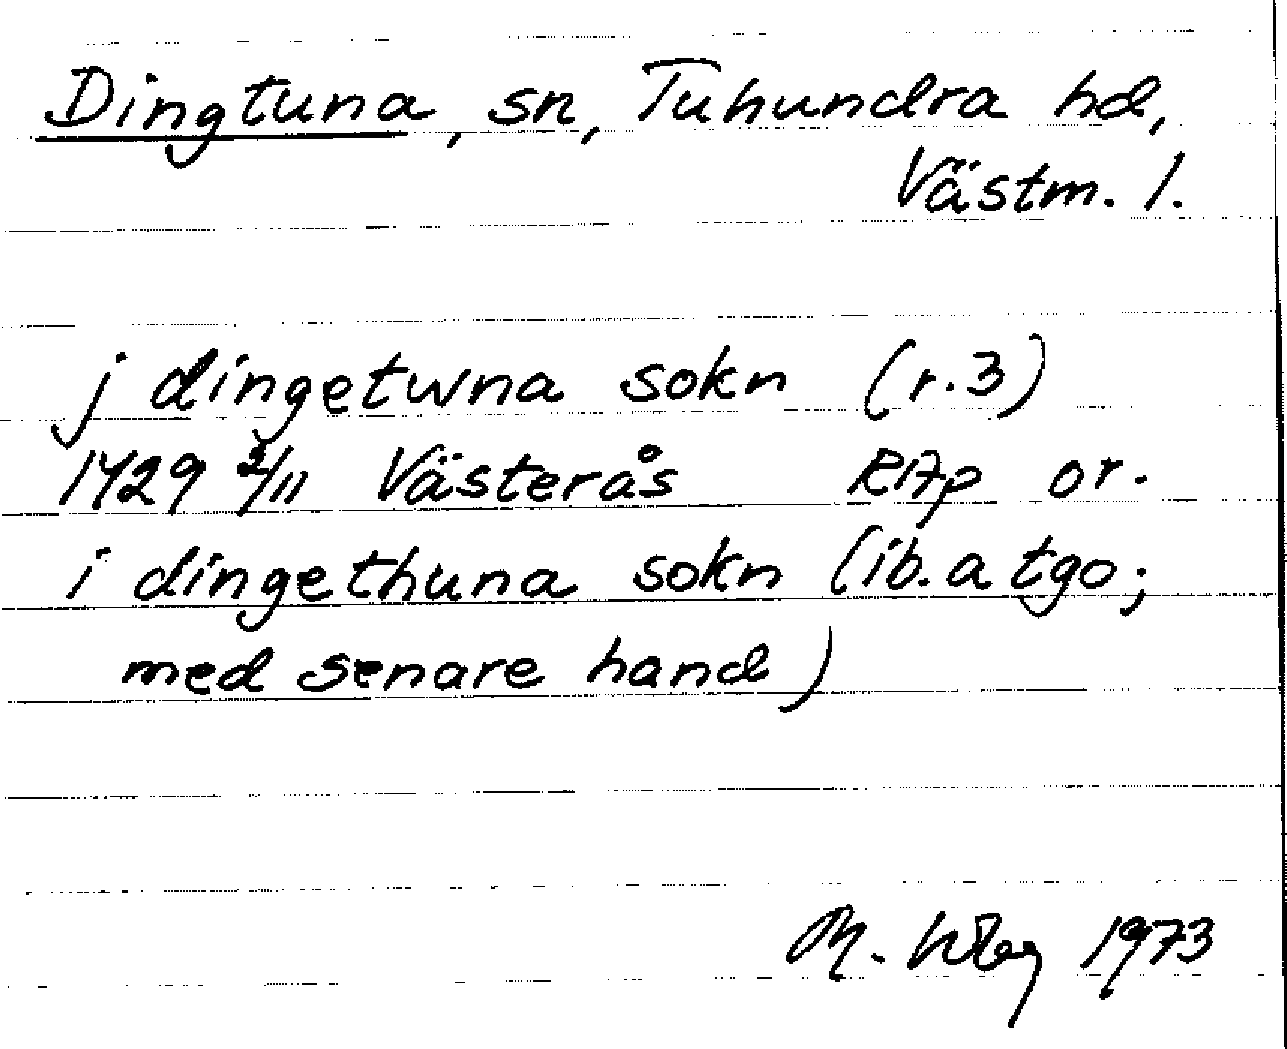 Dingtuna, sn, Tuhundra hd,
Västm. l.
j dingetwna sokn (r.3)
1429 2/11 Västerås RAp or.
i dingethuna sokn (ib. a tgo;
med senare hand)
M. 1973